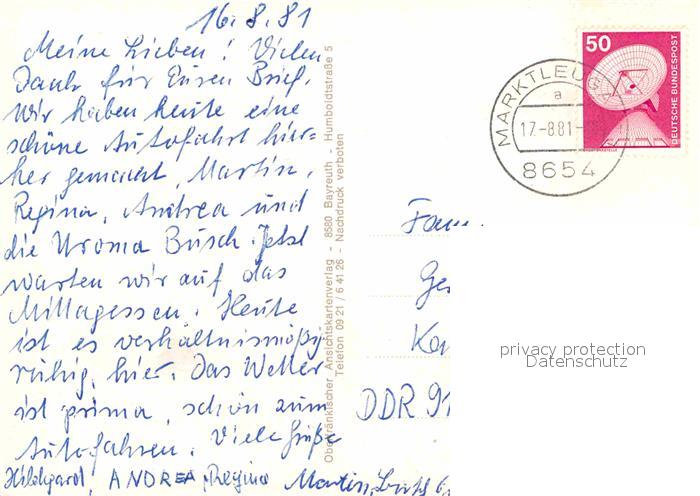 16.8.81
Meine Lieben! Vielen
Dank für Euren Brief.
Wir haben heute eine
schöne Autofahrt hier=
her gemacht, Martin,
Regina, Andrea und
die Uroma Busch. Jetzt
warten wir auf das
Mittagessen. Heute
ist es verhältnismäßig
ruhig, hier. Das Wetter
ist prima, schön zum
Autofahren. Viele Grüße
Hildegard, ANDREA, Regina Martin,
Oberfränkischer Ansichtskartenverlag - 8580 Bayreuth - Humboldtstraße 5
Telefon 09 21 / 6 41 26 - Nachdruck verboten
50
DEUTSCHE BUNDESPOST
MARKTLEUG
a
17.-8.81-
8654
Fam
Ge
Ka
DDR 91
privacy protection
Datenschutz